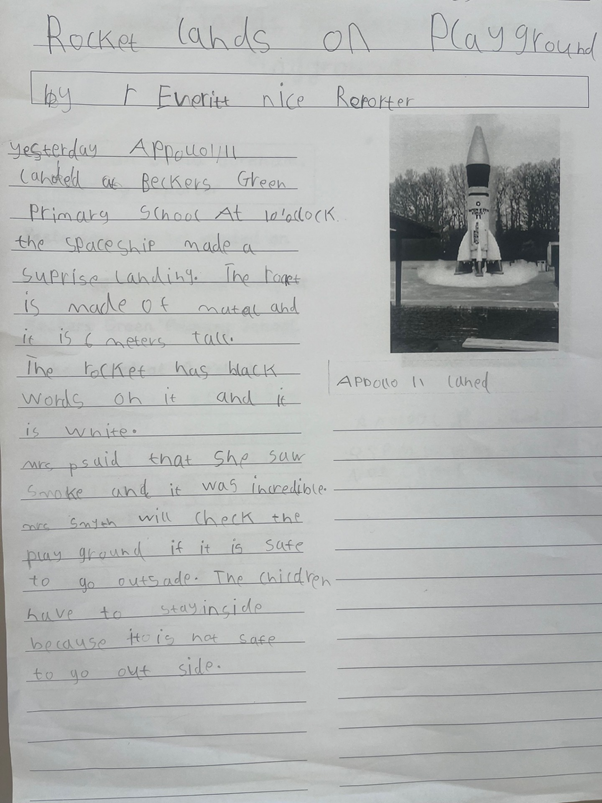 Rocket lands on Playground
by r Everitt nice Reporter
yesterday APPOLLO1/11
landed as Beckers Green
Primary School At 10'oclock
the spaceship made a
suprise landing. The roget
is made of matal and
it is 6 meters tall.
The rocket has black
words on it and it
is white.
mrs p said that she saw
smoke and it was incredible.
mrs Smyth will check the
play ground if it is safe
to go outsade. The children
have to stay inside
because it is not safe
to go out side.
APPollo 11 laned